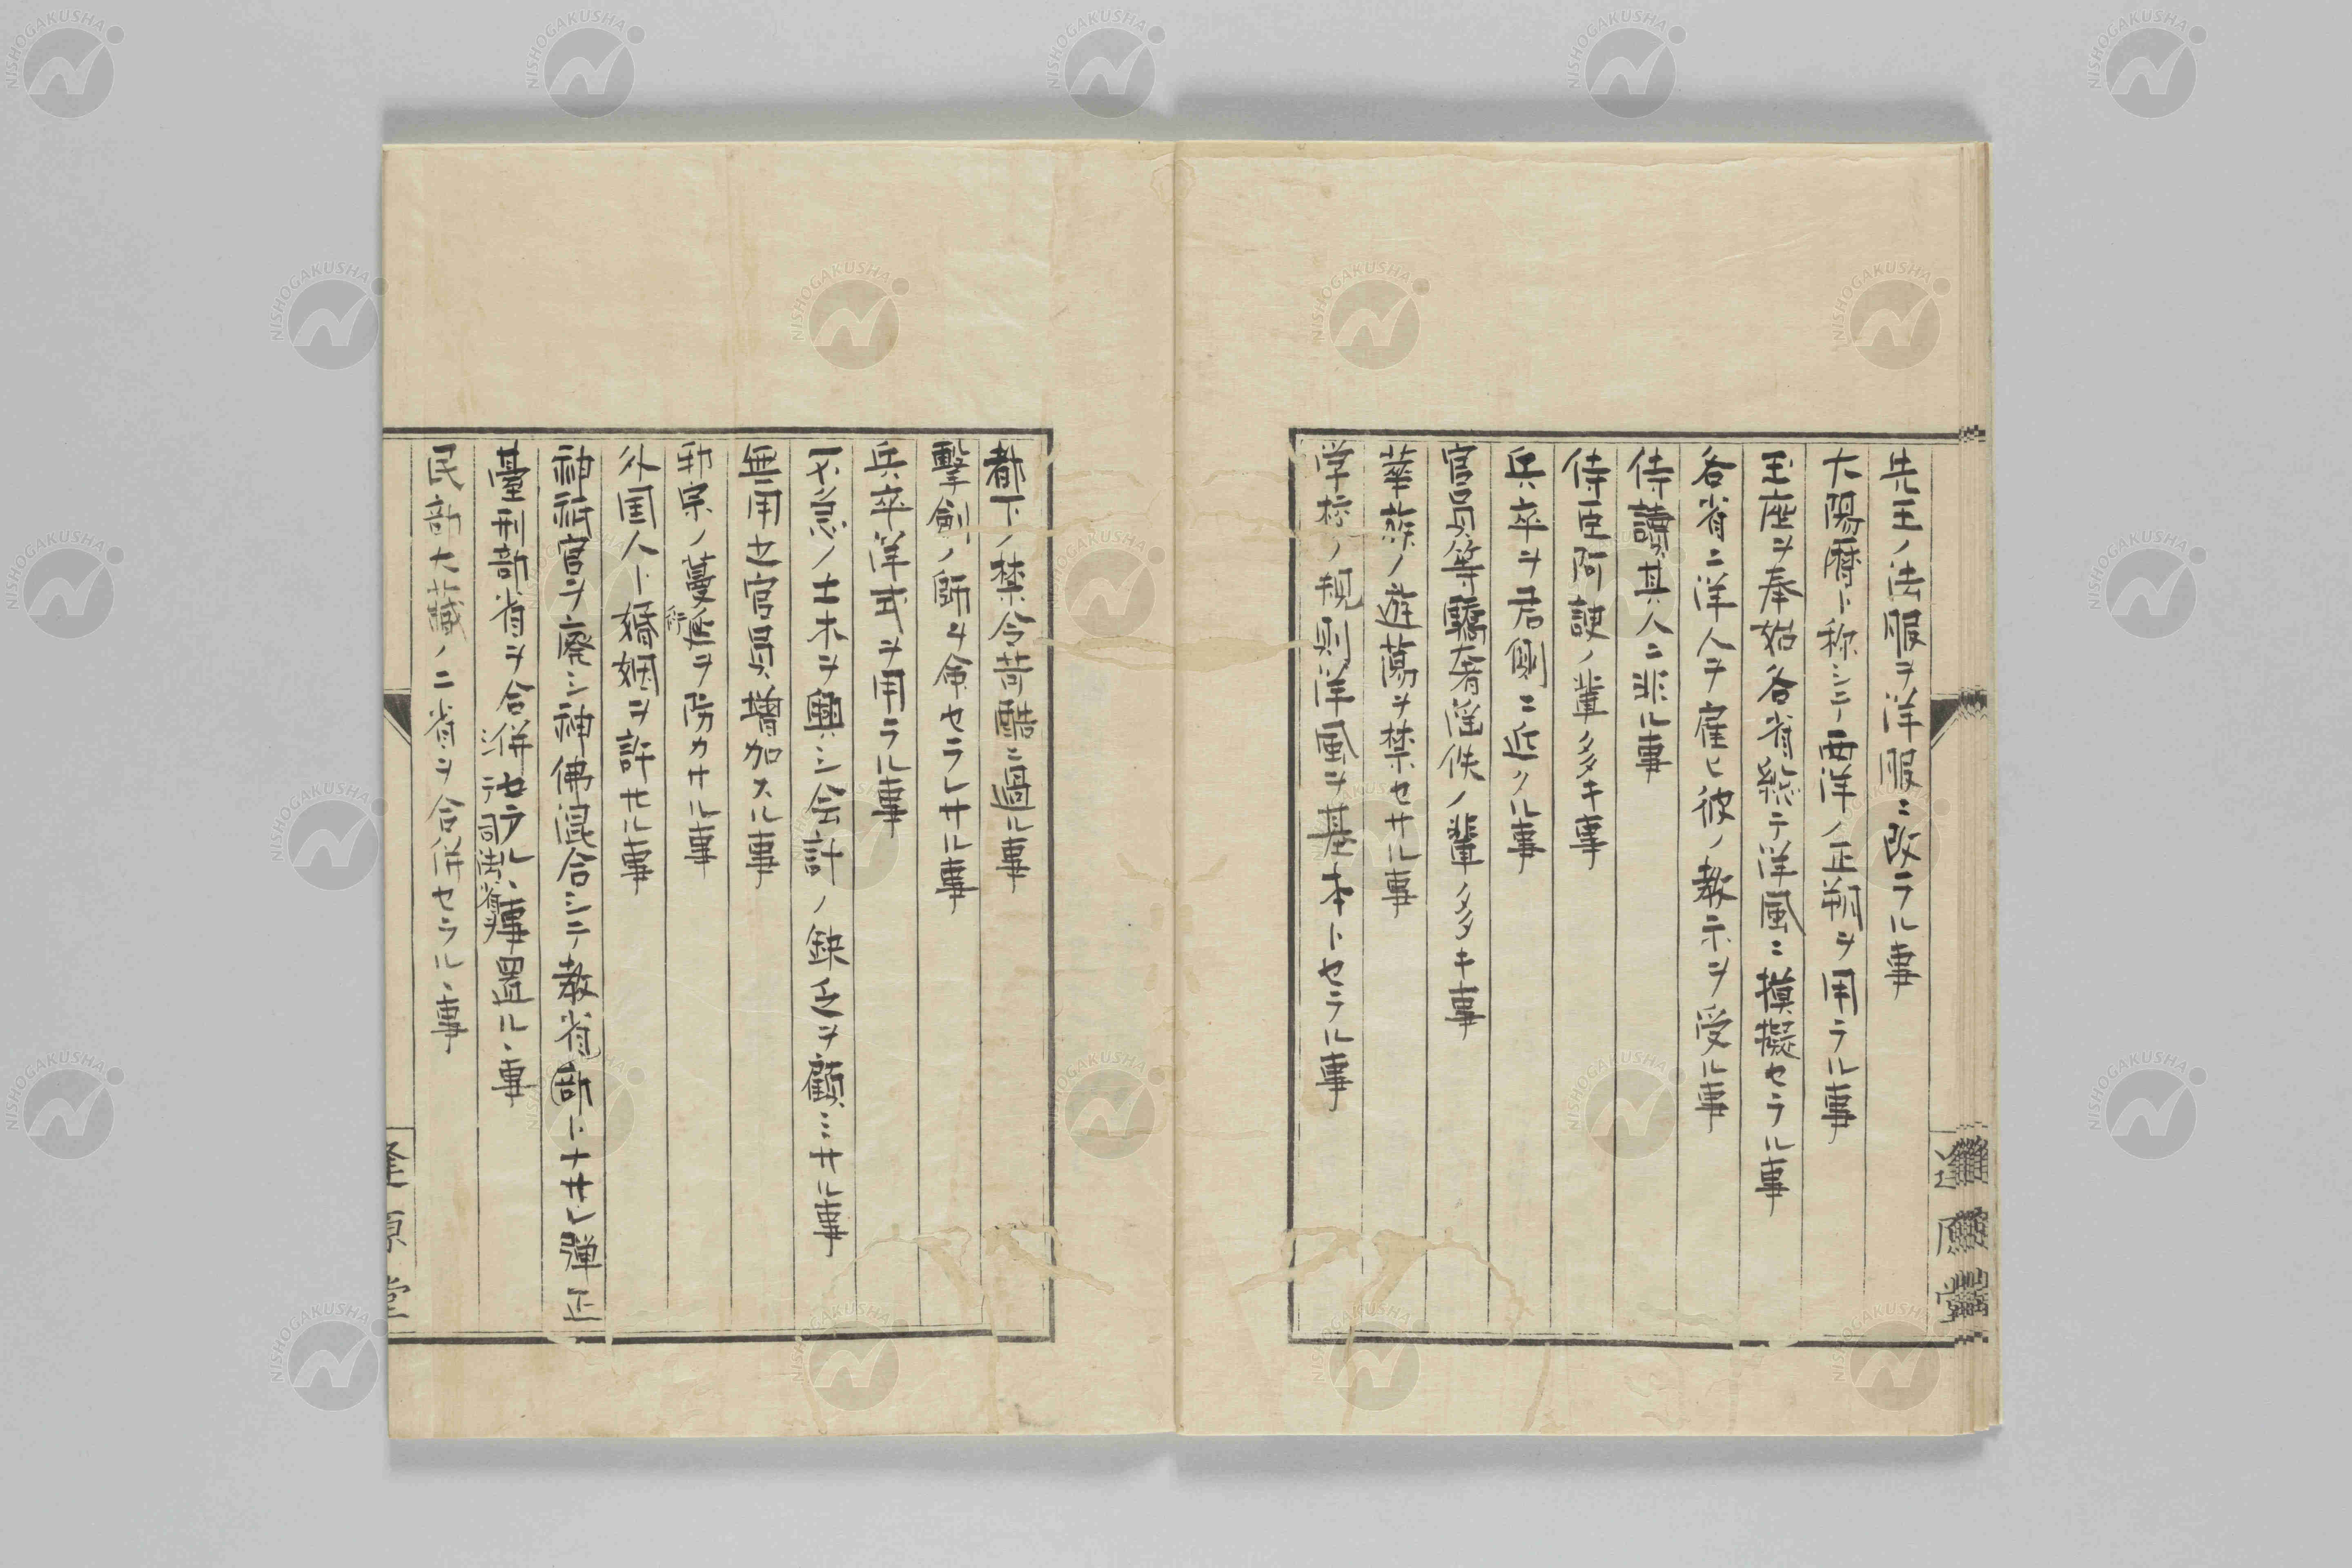 先王ノ法服ヲ洋服ニ改ラル事
大陽暦ト称シテ西洋ノ正朔ヲ用ラル事
玉座ヲ奉始各省総テ洋風ニ摸擬セラル事
各省ニ洋人ヲ雇ヒ彼ノ教示ヲ受ル事
侍讀其人ニ非ル事
侍臣阿諛ノ輩多キ事
兵卒ヲ君側ニ近クル事
官員等驕奢淫佚ノ輩多キ事
華族ノ遊蕩ヲ禁セサル事
学校ノ規則洋風ヲ基本トセラル事
都下ノ禁令苛酷ニ過ル事
擊劍ノ師ヲ命セラレサル事
兵卒洋式ヲ用ラル事
不急ノ土木ヲ興シ会計ノ缺乏ヲ顧ミサル事
無用之官員增加スル事
邪宗ノ蔓延ヲ防カサル事
外国人ト婚姻ヲ許サル事
神祇官ヲ廃シ神佛混合シテ教省部トナサレ弾正
臺刑部省ヲ合併セラル、事置ル、事
司法省ヲ
民部大藏ノ二省ヲ合併セラル、事
逢原堂
NISHOGAKUSHA